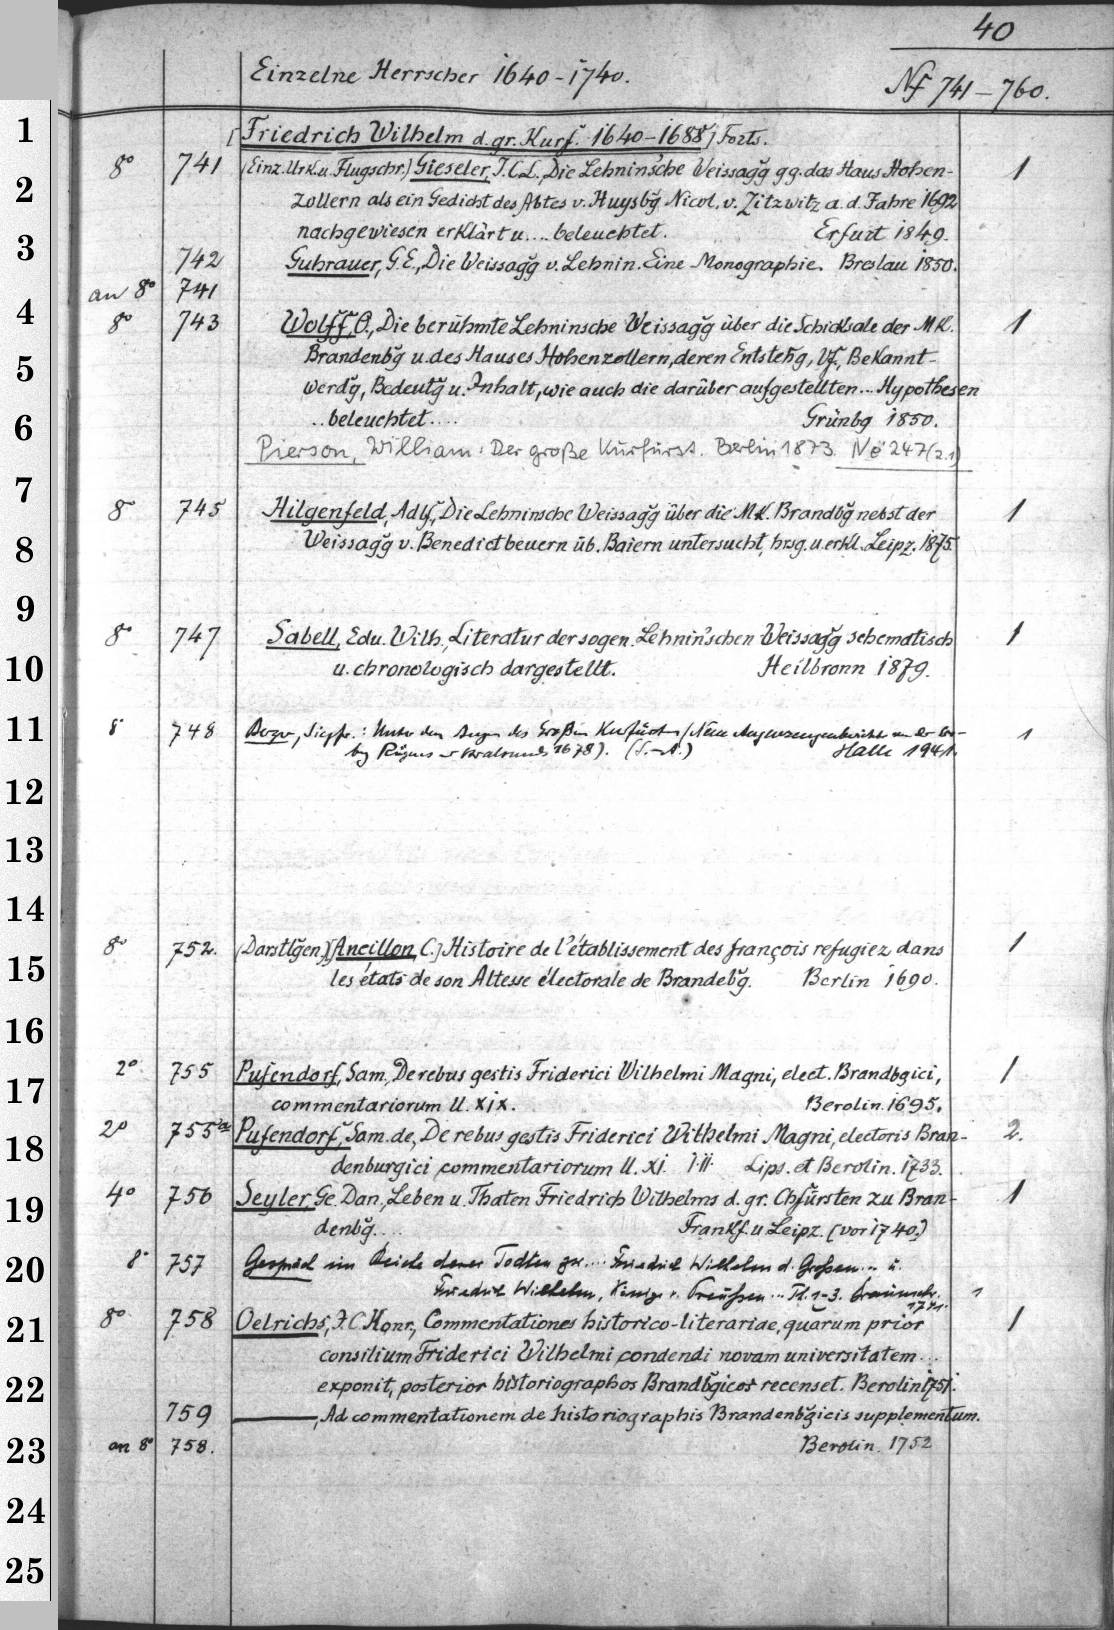 40
Einzelne Herrscher 1640-1740.
Nf 741-760.
[Friedrich Wilhelm d. gr. Kurf. 1640-1688] Forts.
8° 741 (Einz. Urk. u. Flugschr.) Gieseler, J.C.L., Die Lehnin'sche Weissagg gg. das Haus Hohen- 1
zollern als ein Gedicht des Abtes v. Huysbg Nicol. v. Zitzwitz a. d. Jahre 1692
nachgewiesen erklärt u.... beleuchtet. Erfurt 1849.
742 Guhrauer, G.E., Die Weissagg v. Lehnin. Eine Monographie. Breslau 1850.
an 8° 741
8° 743 Wolff, O., Die berühmte Lehninsche Weissagg über die Schicksale der MK. 1
Brandenbg u. des Hauses Hohenzollern, deren Entstehg, Vf., Bekannt-
werdg, Bedeutg u. Inhalt, wie auch die darüber aufgestellten... Hypothesen
..beleuchtet.... Grünbg 1850.
Pierson, William: Der große Kurfürst. Berlin 1873. Ne 247 (2.1)
8° 745 Hilgenfeld, Adf., Die Lehninsche Weissagg über die MK. Brandbg nebst der 1
Weissagg v. Benedictbeuern üb. Baiern untersucht, hrsg. u. erkl. Leipz. 1875.
8° 747 Sabell, Edu. Wilh., Literatur der sogen. Lehnin'schen Weissagg schematisch 1
u. chronologisch dargestellt. Heilbronn 1879.
8° 748 Siegfr.: Unter den Augen des Großen Kurfürsten (Neue Augenzeugenberichte von der Ero- 1
bg Rügens u. Stralsunds 1678). (S.-A.) Halle 1941.
8° 752. (Darstlgen) [Ancillon, C.] Histoire de l'établissement des françois refugiez dans 1
les états de son Altesse électorale de Brandebg. Berlin 1690.
2° 755 Pufendorf, Sam., De rebus gestis Friderici Wilhelmi Magni, elect. Brandbgici, 1
commentariorum ll. XIX. Berolin. 1695.
2° 755 Pufendorf, Sam. de, De rebus gestis Friderici Wilhelmi Magni, electoris Bran- 2.
denburgici commentariorum ll. XI. I.II. Lips. et Berolin. 1733.
4° 756 Seyler, Ge. Dan., Leben u. Thaten Friedrich Wilhelms d. gr. Chfürsten zu Bran- 1
denbg.... Frankf. u Leipz. (vor 1740.)
8° 757 Gespräch im Reiche derer Todten zw.... Friedrich Wilhelm d. Großen... u.
Friedrich Wilhelm, Könige v. Preußen... Tl. 1-3. Braunschw. 1741. 1
8° 758 Oelrichs, J.C. Konr., Commentationes historico-literariae, quarum prior 1
consilium Friderici Wilhelmi condendi novam universitatem...
exponit, posterior historiographos Brandbgicos recenset. Berolin 1751.
759 ———, Ad commentationem de historiographis Brandenbgicis supplementum.
an 8° 758. Berolin. 1752
1
2
3
4
5
6
7
8
9
10
11
12
13
14
15
16
17
18
19
20
21
22
23
24
25